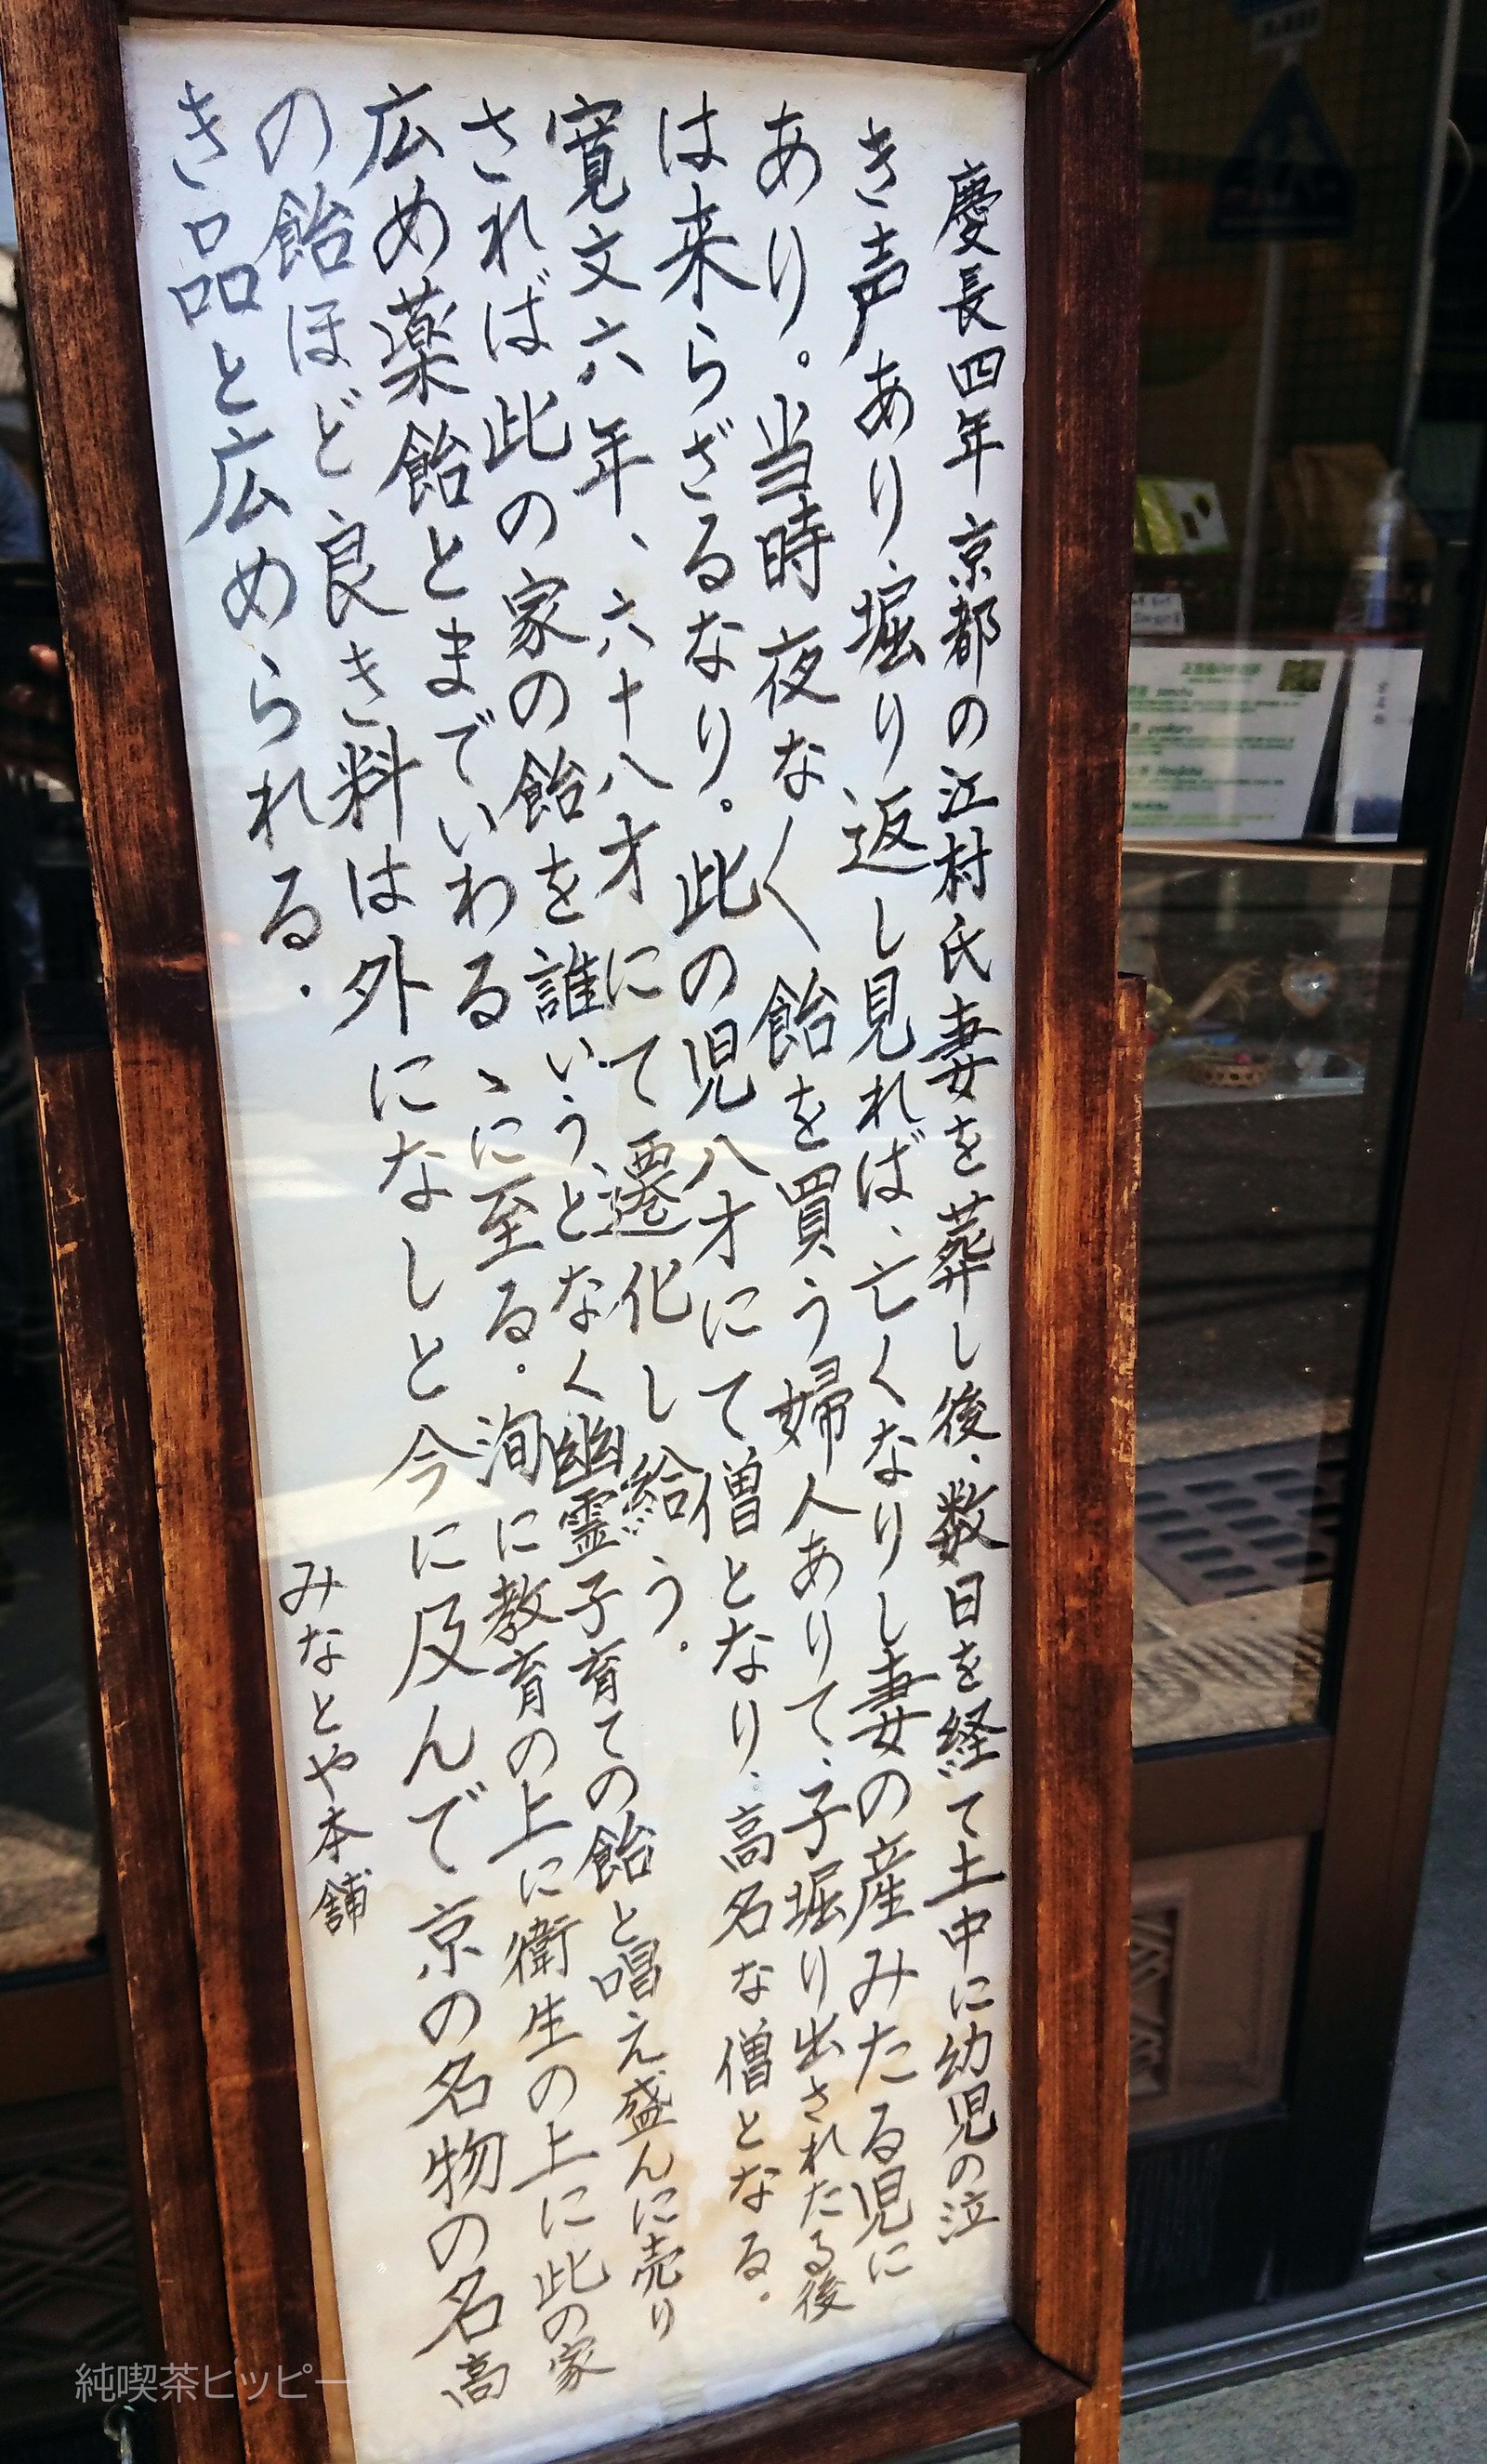 慶長四年 京都の江村氏妻を葬し後、数日を経て土中に幼児の泣
き声あり、堀り返し見れば、亡くなりし妻の産みたる児に
あり。当時夜な〱飴を買う婦人ありて、子堀り出されたる後
は来らざるなり。此の児八才にて僧となり、高名な僧となる。
寛文六年、六十八才にて遷化し給う。
されば此の家の飴を誰いうとなく幽霊子育ての飴と唱え盛んに売り
広め薬飴とまでいわるゝに至る。洵に教育の上に衛生の上に此の家
の飴ほど良き料は外になしと今に及んで京の名物の名高
き品と広められる。
みなとや本舗
純喫茶ヒッピー